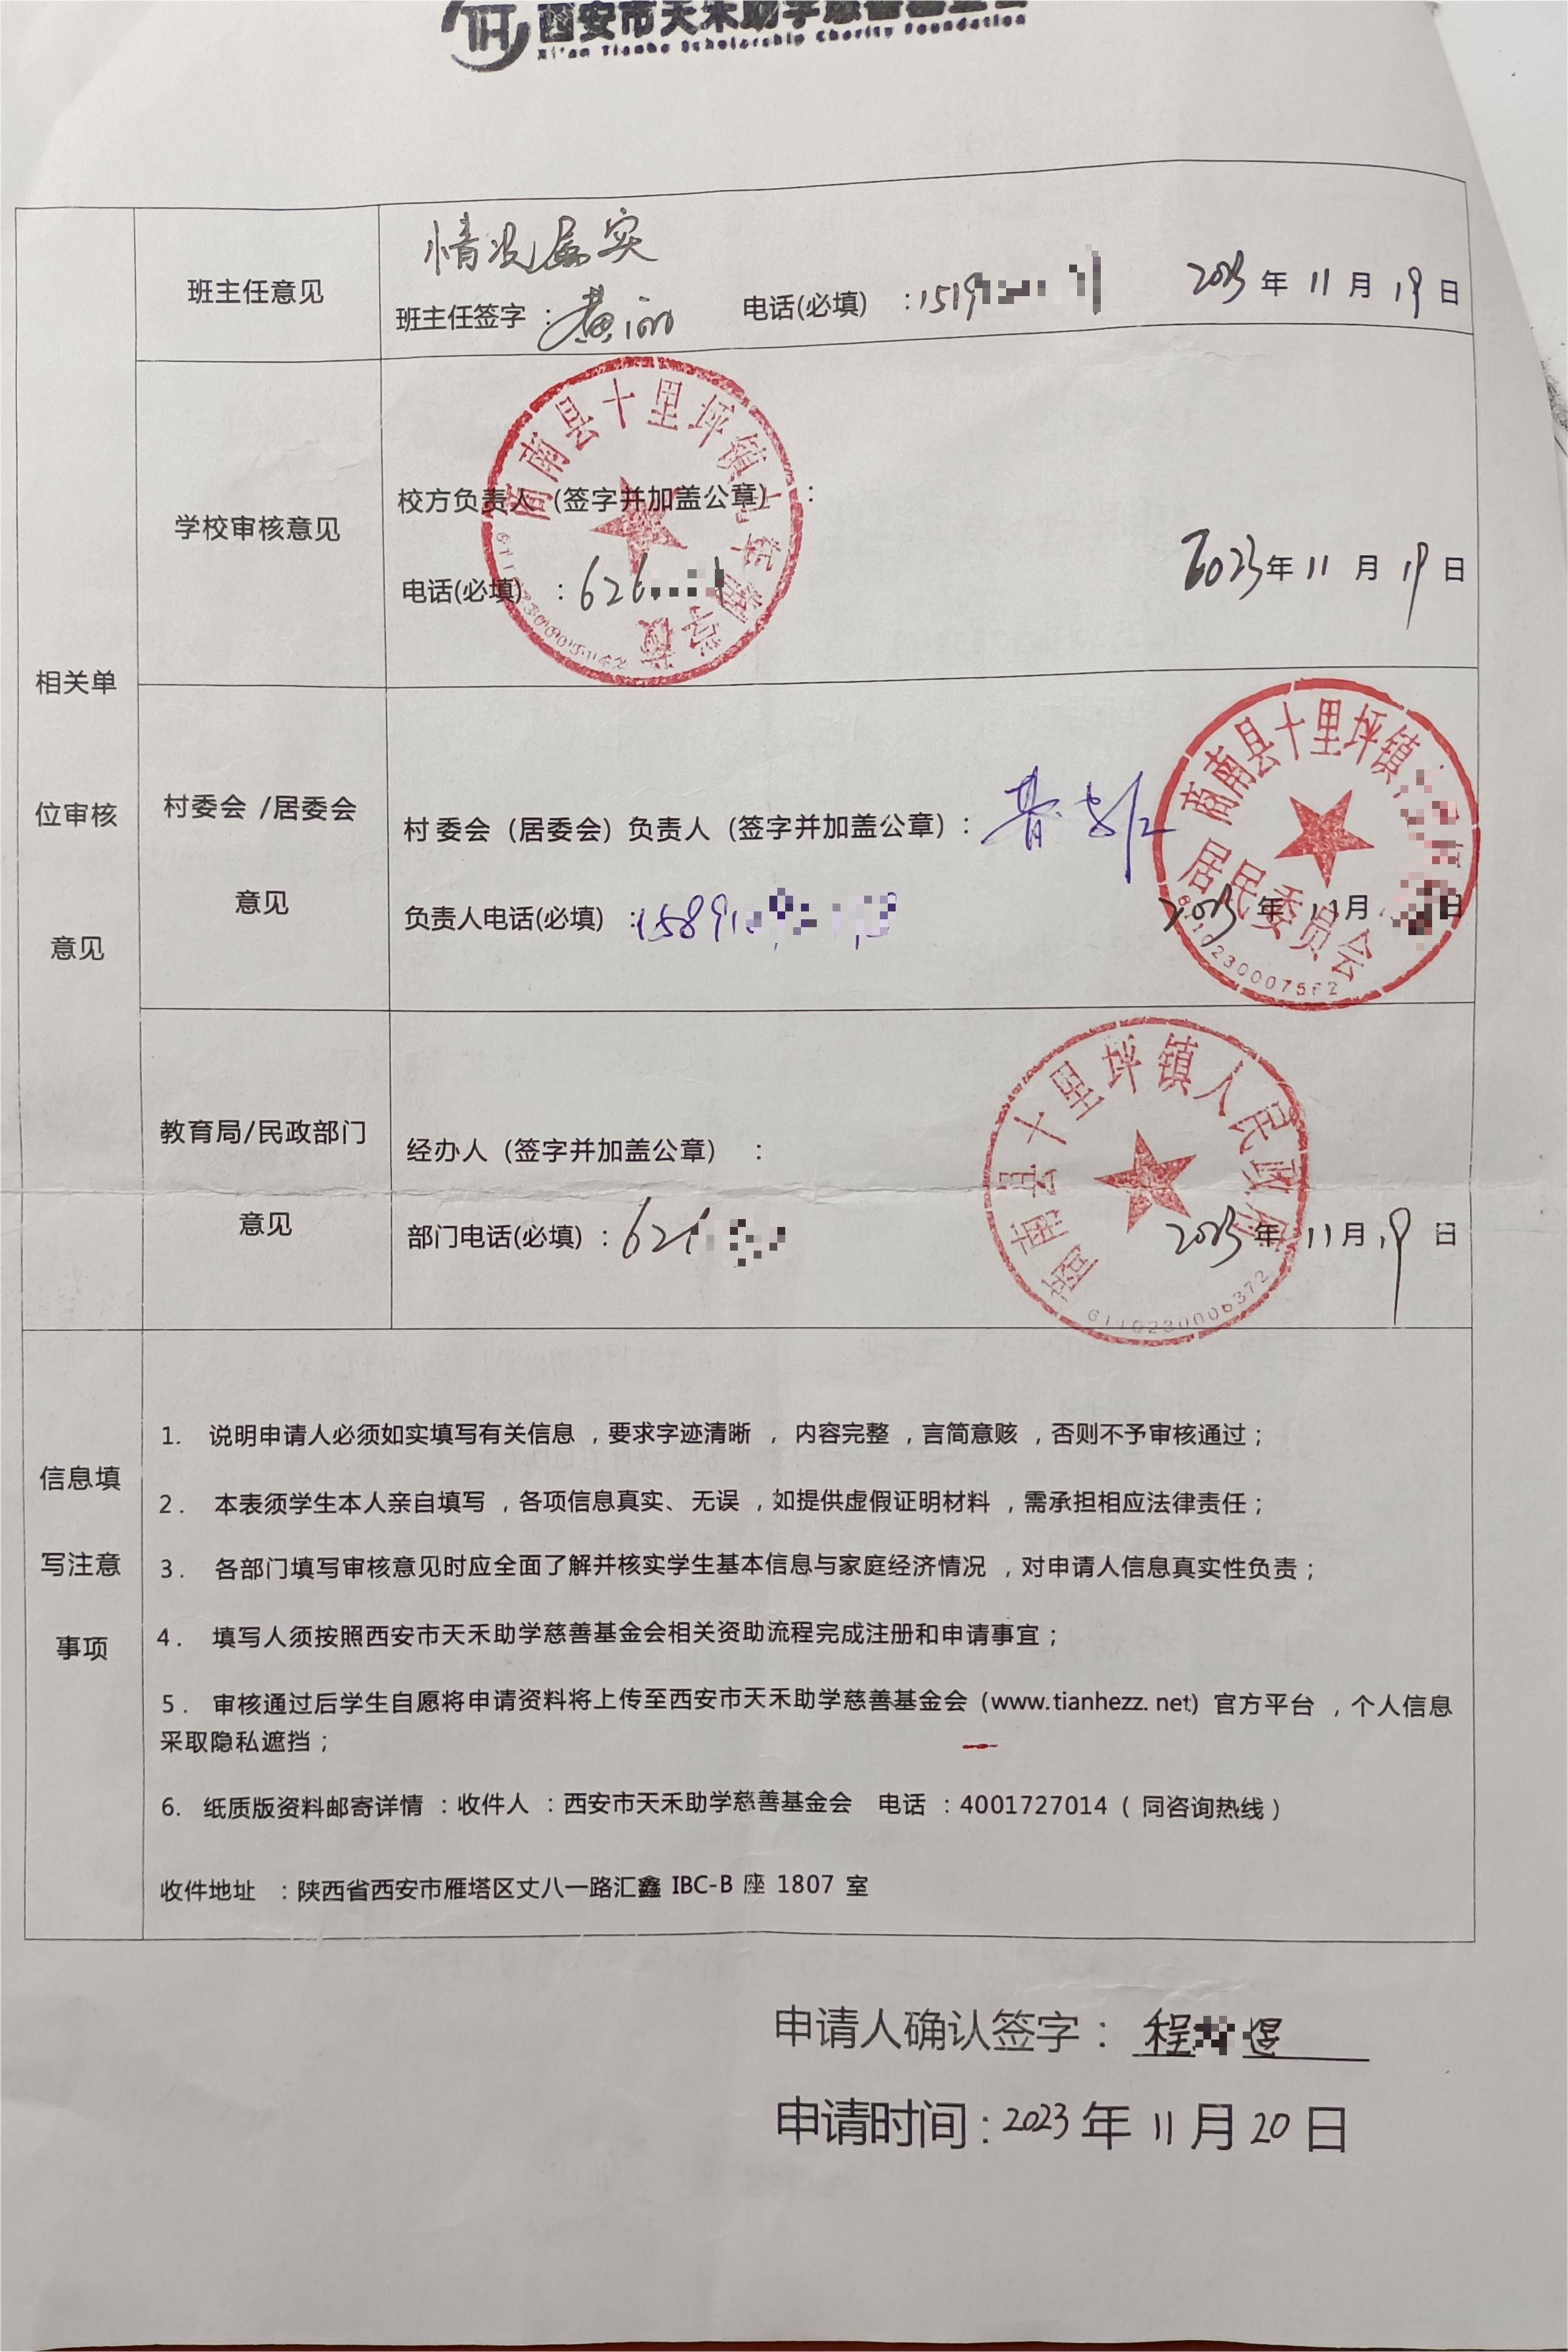 西安市天禾助学慈善基金会
Xi'an Tianhe Scholarship Charity Foundation
相关单位审核意见
班主任意见
情况属实
班主任签字： 电话(必填)：1519 2023年11月19日
学校审核意见
校方负责人（签字并加盖公章）：
电话(必填)：626
2023年11月19日
商南县十里坪镇
学校
村委会/居委会意见
村委会（居委会）负责人（签字并加盖公章）：
负责人电话(必填)：1589
2023年11月 日
商南县十里坪镇
居民委员会
6110230007562
教育局/民政部门意见
经办人（签字并加盖公章）：
部门电话(必填)：62
2023年11月19日
商南县十里坪镇人民政府
6110230006372
信息填写注意事项
1. 说明申请人必须如实填写有关信息，要求字迹清晰，内容完整，言简意赅，否则不予审核通过；
2. 本表须学生本人亲自填写，各项信息真实、无误，如提供虚假证明材料，需承担相应法律责任；
3. 各部门填写审核意见时应全面了解并核实学生基本信息与家庭经济情况，对申请人信息真实性负责；
4. 填写人须按照西安市天禾助学慈善基金会相关资助流程完成注册和申请事宜；
5. 审核通过后学生自愿将申请资料将上传至西安市天禾助学慈善基金会（www.tianhezz. net）官方平台，个人信息
采取隐私遮挡；
6. 纸质版资料邮寄详情：收件人：西安市天禾助学慈善基金会 电话：4001727014（同咨询热线）
收件地址：陕西省西安市雁塔区丈八一路汇鑫 IBC-B 座 1807 室
申请人确认签字：程 煜
申请时间：2023年11月20日